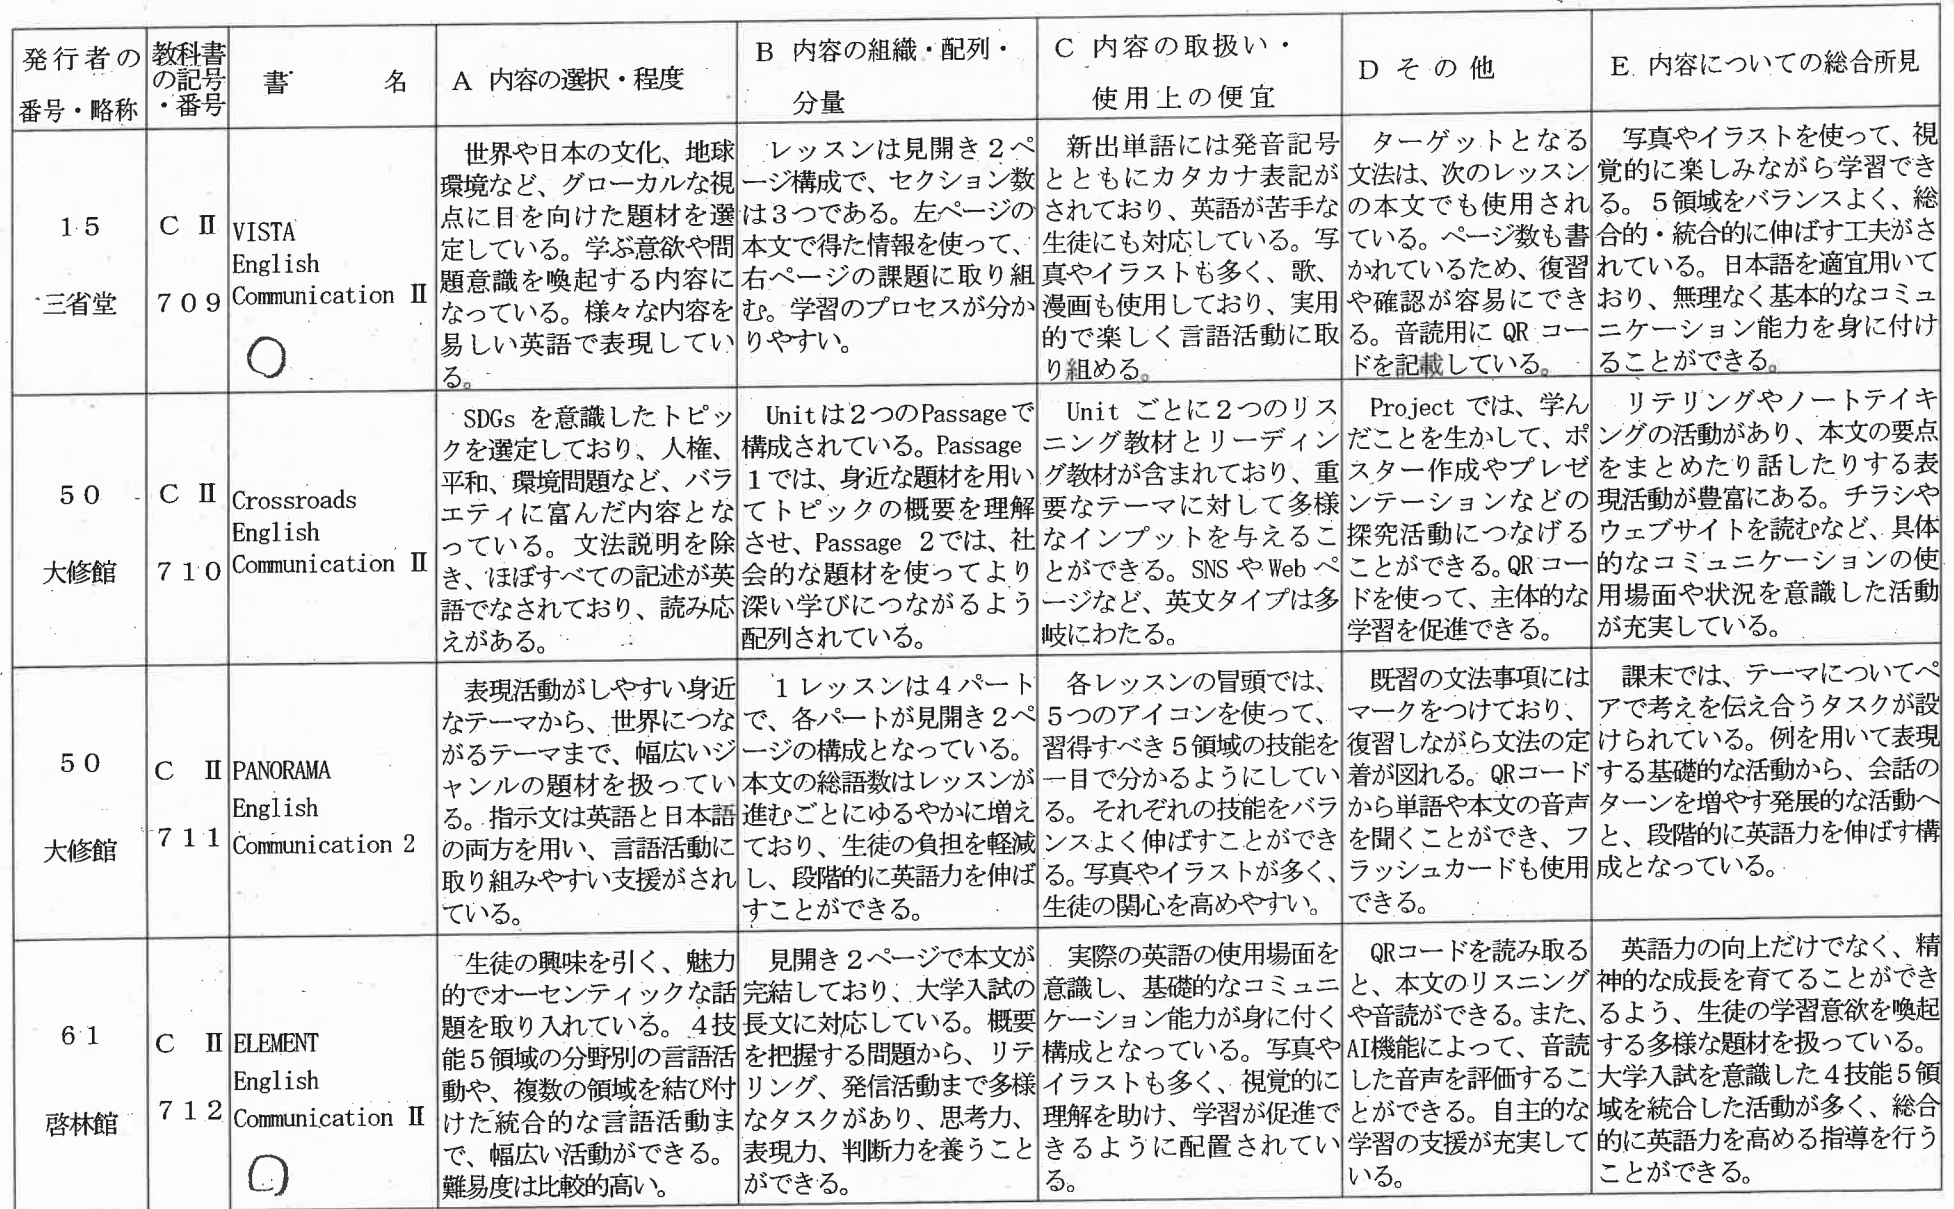 発行者の
番号・略称
教科書
の記号
・番号
書　　　名
A 内容の選択・程度
B 内容の組織・配列・
分量
C 内容の取扱い・
使用上の便宜
D その他
E 内容についての総合所見
15
三省堂
C Ⅱ
709
VISTA
English
Communication Ⅱ
世界や日本の文化、地球
環境など、グローカルな視
点に目を向けた題材を選
定している。学ぶ意欲や問
題意識を喚起する内容に
なっている。様々な内容を
易しい英語で表現してい
る。
レッスンは見開き２ペ
ージ構成で、セクション数
は３つである。左ページの
本文で得た情報を使って、
右ページの課題に取り組
む。学習のプロセスが分か
りやすい。
新出単語には発音記号
とともにカタカナ表記が
されており、英語が苦手な
生徒にも対応している。写
真やイラストも多く、歌、
漫画も使用しており、実用
的で楽しく言語活動に取
り組める。
ターゲットとなる
文法は、次のレッスン
の本文でも使用され
ている。ページ数も書
かれているため、復習
や確認が容易にでき
る。音読用に QR コー
ドを記載している。
写真やイラストを使って、視
覚的に楽しみながら学習でき
る。５領域をバランスよく、総
合的・統合的に伸ばす工夫がさ
れている。日本語を適宜用いて
おり、無理なく基本的なコミュ
ニケーション能力を身に付け
ることができる。
50
大修館
C Ⅱ
710
Crossroads
English
Communication Ⅱ
SDGs を意識したトピッ
クを選定しており、人権、
平和、環境問題など、バラ
エティに富んだ内容とな
っている。文法説明を除
き、ほぼすべての記述が英
語でなされており、読み応
えがある。
Unitは２つのPassageで
構成されている。Passage
１では、身近な題材を用い
てトピックの概要を理解
させ、Passage 2では、社
会的な題材を使ってより
深い学びにつながるよう
配列されている。
Unit ごとに２つのリス
ニング教材とリーディン
グ教材が含まれており、重
要なテーマに対して多様
なインプットを与えるこ
とができる。SNS や Web ペ
ージなど、英文タイプは多
岐にわたる。
Project では、学ん
だことを生かして、ポ
スター作成やプレゼ
ンテーションなどの
探究活動につなげる
ことができる。QR コー
ドを使って、主体的な
学習を促進できる。
リテリングやノートテイキ
ングの活動があり、本文の要点
をまとめたり話したりする表
現活動が豊富にある。チラシや
ウェブサイトを読むなど、具体
的なコミュニケーションの使
用場面や状況を意識した活動
が充実している。
50
大修館
C Ⅱ
711
PANORAMA
English
Communication 2
表現活動がしやすい身近
なテーマから、世界につな
がるテーマまで、幅広いジ
ャンルの題材を扱ってい
る。指示文は英語と日本語
の両方を用い、言語活動に
取り組みやすい支援がされ
ている。
１レッスンは４パート
で、各パートが見開き２ペ
ージの構成となっている。
本文の総語数はレッスンが
進むごとにゆるやかに増え
ており、生徒の負担を軽減
し、段階的に英語力を伸ば
すことができる。
各レッスンの冒頭では、
５つのアイコンを使って、
習得すべき５領域の技能を
一目で分かるようにしてい
る。それぞれの技能をバラ
ンスよく伸ばすことができ
る。写真やイラストが多く、
生徒の関心を高めやすい。
既習の文法事項には
マークをつけており、
復習しながら文法の定
着が図れる。QRコード
から単語や本文の音声
を聞くことができ、フ
ラッシュカードも使用
できる。
課末では、テーマについてペ
アで考えを伝え合うタスクが設
けられている。例を用いて表現
する基礎的な活動から、会話の
ターンを増やす発展的な活動へ
と、段階的に英語力を伸ばす構
成となっている。
61
啓林館
C Ⅱ
712
ELEMENT
English
Communication Ⅱ
生徒の興味を引く、魅力
的でオーセンティックな話
題を取り入れている。４技
能５領域の分野別の言語活
動や、複数の領域を結び付
けた統合的な言語活動ま
で、幅広い活動ができる。
難易度は比較的高い。
見開き２ページで本文が
完結しており、大学入試の
長文に対応している。概要
を把握する問題から、リテ
リング、発信活動まで多様
なタスクがあり、思考力、
表現力、判断力を養うこと
ができる。
実際の英語の使用場面を
意識し、基礎的なコミュニ
ケーション能力が身に付く
構成となっている。写真や
イラストも多く、視覚的に
理解を助け、学習が促進で
きるように配置されてい
る。
QRコードを読み取る
と、本文のリスニング
や音読ができる。また、
AI機能によって、音読
した音声を評価するこ
とができる。自主的な
学習の支援が充実して
いる。
英語力の向上だけでなく、精
神的な成長を育てることができ
るよう、生徒の学習意欲を喚起
する多様な題材を扱っている。
大学入試を意識した４技能５領
域を統合した活動が多く、総合
的に英語力を高める指導を行う
ことができる。